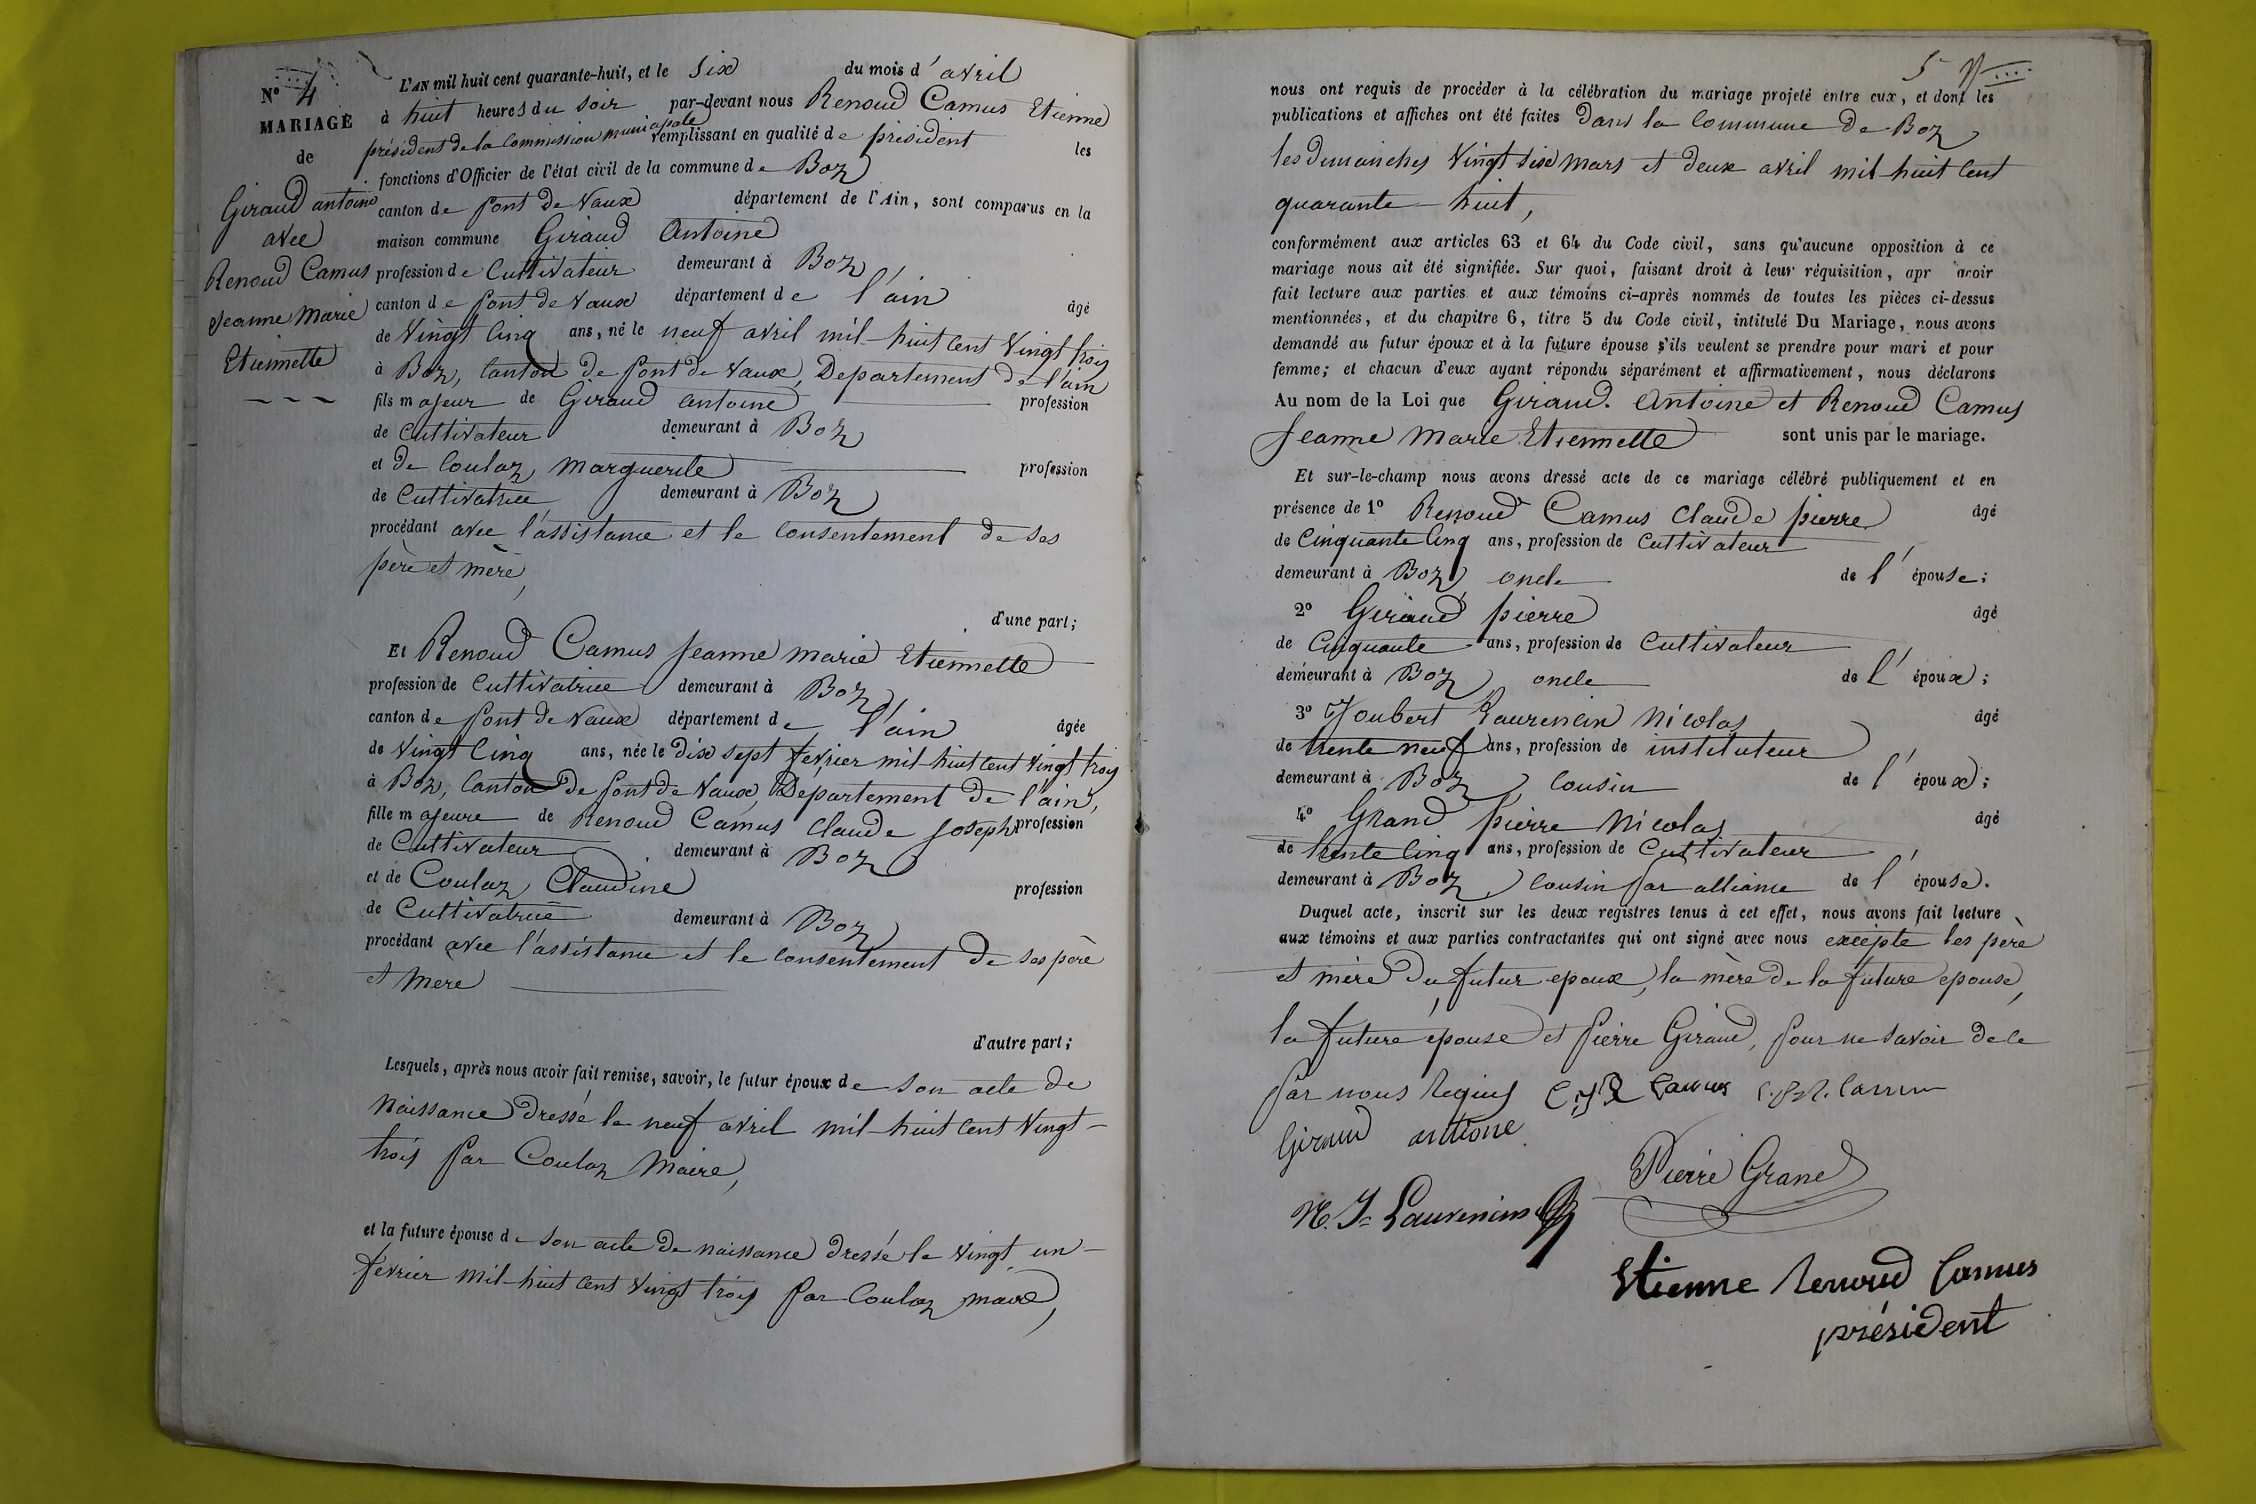 N° 4
MARIAGE
de
Giraud antoine
avec
Renoud Camus
Jeanne Marie
Etiennette
L'AN mil huit cent quarante-huit, et le six du mois d'avril
à huit heures du soir par-devant nous Renoud Camus Etienne
président de la Commission municipale remplissant en qualité de président les
fonctions d'Officier de l'état civil de la commune de Boz
canton de pont de Vaux département de l'Ain, sont comparus en la
maison commune Giraud Antoine
profession de Cultivateur demeurant à Boz
canton de pont de Vaux département de l'ain âgé
de Vingt Cinq ans, né le neuf avril mil-huit cent Vingt trois
à Boz, Canton de pont de Vaux, Departement de l'ain
fils majeur de Giraud antoine profession
de Cultivateur demeurant à Boz
et de Coulaz, Marguerite profession
de Cultivatrice demeurant à Boz
procédant avec l'assistance et le Consentement de ses
père et mère,
d'une part;
Et Renoud Camus Jeanne Marie Etiennette
profession de Cultivatrice demeurant à Boz
canton de pont de Vaux département de l'ain âgée
de Vingt Cinq ans, née le dix sept fevrier mil-huit cent vingt trois
à Boz, Canton de pont de Vaux, Département de l'ain,
fille majeure de Renoud Camus Claude Joseph profession
de Cultivateur demeurant à Boz
et de Coulaz, Claudine profession
de Cultivatrice demeurant à Boz
procédant avec l'assistance et le consentement de ses père
et Mere
d'autre part;
Lesquels, après nous avoir fait remise, savoir, le futur époux de son acte de
Naissance dressé le neuf avril mil-huit cent Vingt-
trois par Coulaz Maire,
et la future épouse de son acte de naissance dressé le vingt un
fevrier mil-huit cent vingt trois par Coulaz maire,
5
nous ont requis de procéder à la célébration du mariage projeté entre eux, et dont les
publications et affiches ont été faites dans la Commune de Boz
les dimanches Vingt six Mars et deux avril mil huit Cent
quarante-huit,
conformément aux articles 63 et 64 du Code civil, sans qu'aucune opposition à ce
mariage nous ait été signifiée. Sur quoi, faisant droit à leur réquisition, apr avoir
fait lecture aux parties et aux témoins ci-après nommés de toutes les pièces ci-dessus
mentionnées, et du chapitre 6, titre 5 du Code civil, intitulé Du Mariage, nous avons
demandé au futur époux et à la future épouse s'ils veulent se prendre pour mari et pour
femme; et chacun d'eux ayant répondu séparément et affirmativement, nous déclarons
Au nom de la Loi que Giraud. Antoine et Renoud Camus
Jeanne Marie Etiennette sont unis par le mariage.
Et sur-le-champ nous avons dressé acte de ce mariage célébré publiquement et en
présence de 1° Renoud Camus Claude pierre âgé
de Cinquante Cinq ans, profession de Cultivateur
demeurant à Boz, oncle de l'épouse;
2° Giraud pierre âgé
de Cinquante ans, profession de Cultivateur
demeurant à Boz, oncle de l'époux;
3° Joubert Laurencin Nicolas âgé
de trente neuf ans, profession de instituteur
demeurant à Boz, cousin de l'époux;
4° Grand pierre Nicolas âgé
de trente Cinq ans, profession de Cultivateur
demeurant à Boz, Cousin par alliance de l'épouse.
Duquel acte, inscrit sur les deux registres tenus à cet effet, nous avons fait lecture
aux témoins et aux parties contractantes qui ont signé avec nous excépte les père
et mère du futur epoux, la mère de la future epouse,
la future épouse et Pierre Giraud, pour ne savoir de ce
par nous requis C.J.R Camus C.P.R. Camus
Giraud antione
Pierre Grand
N. J= Laurencin
Etienne Renoud Camus
président